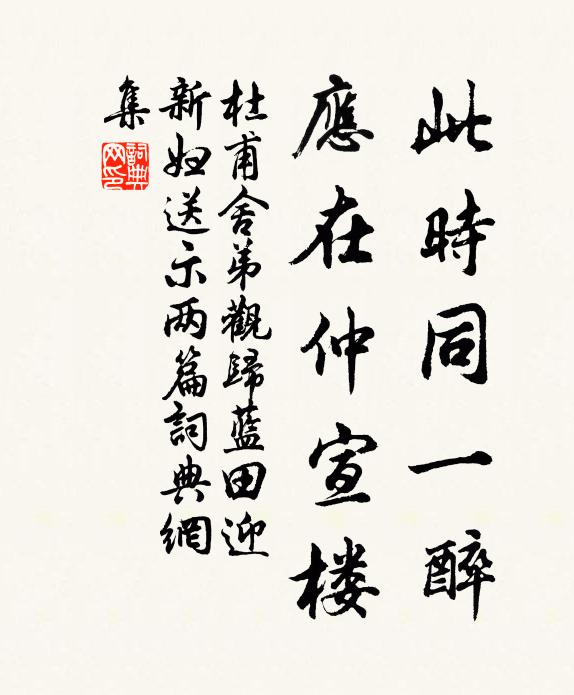 此時同一醉
應在仲宣楼
杜甫舍弟觀歸藍田迎
新妇送示两篇詞典網
集
詞典網印